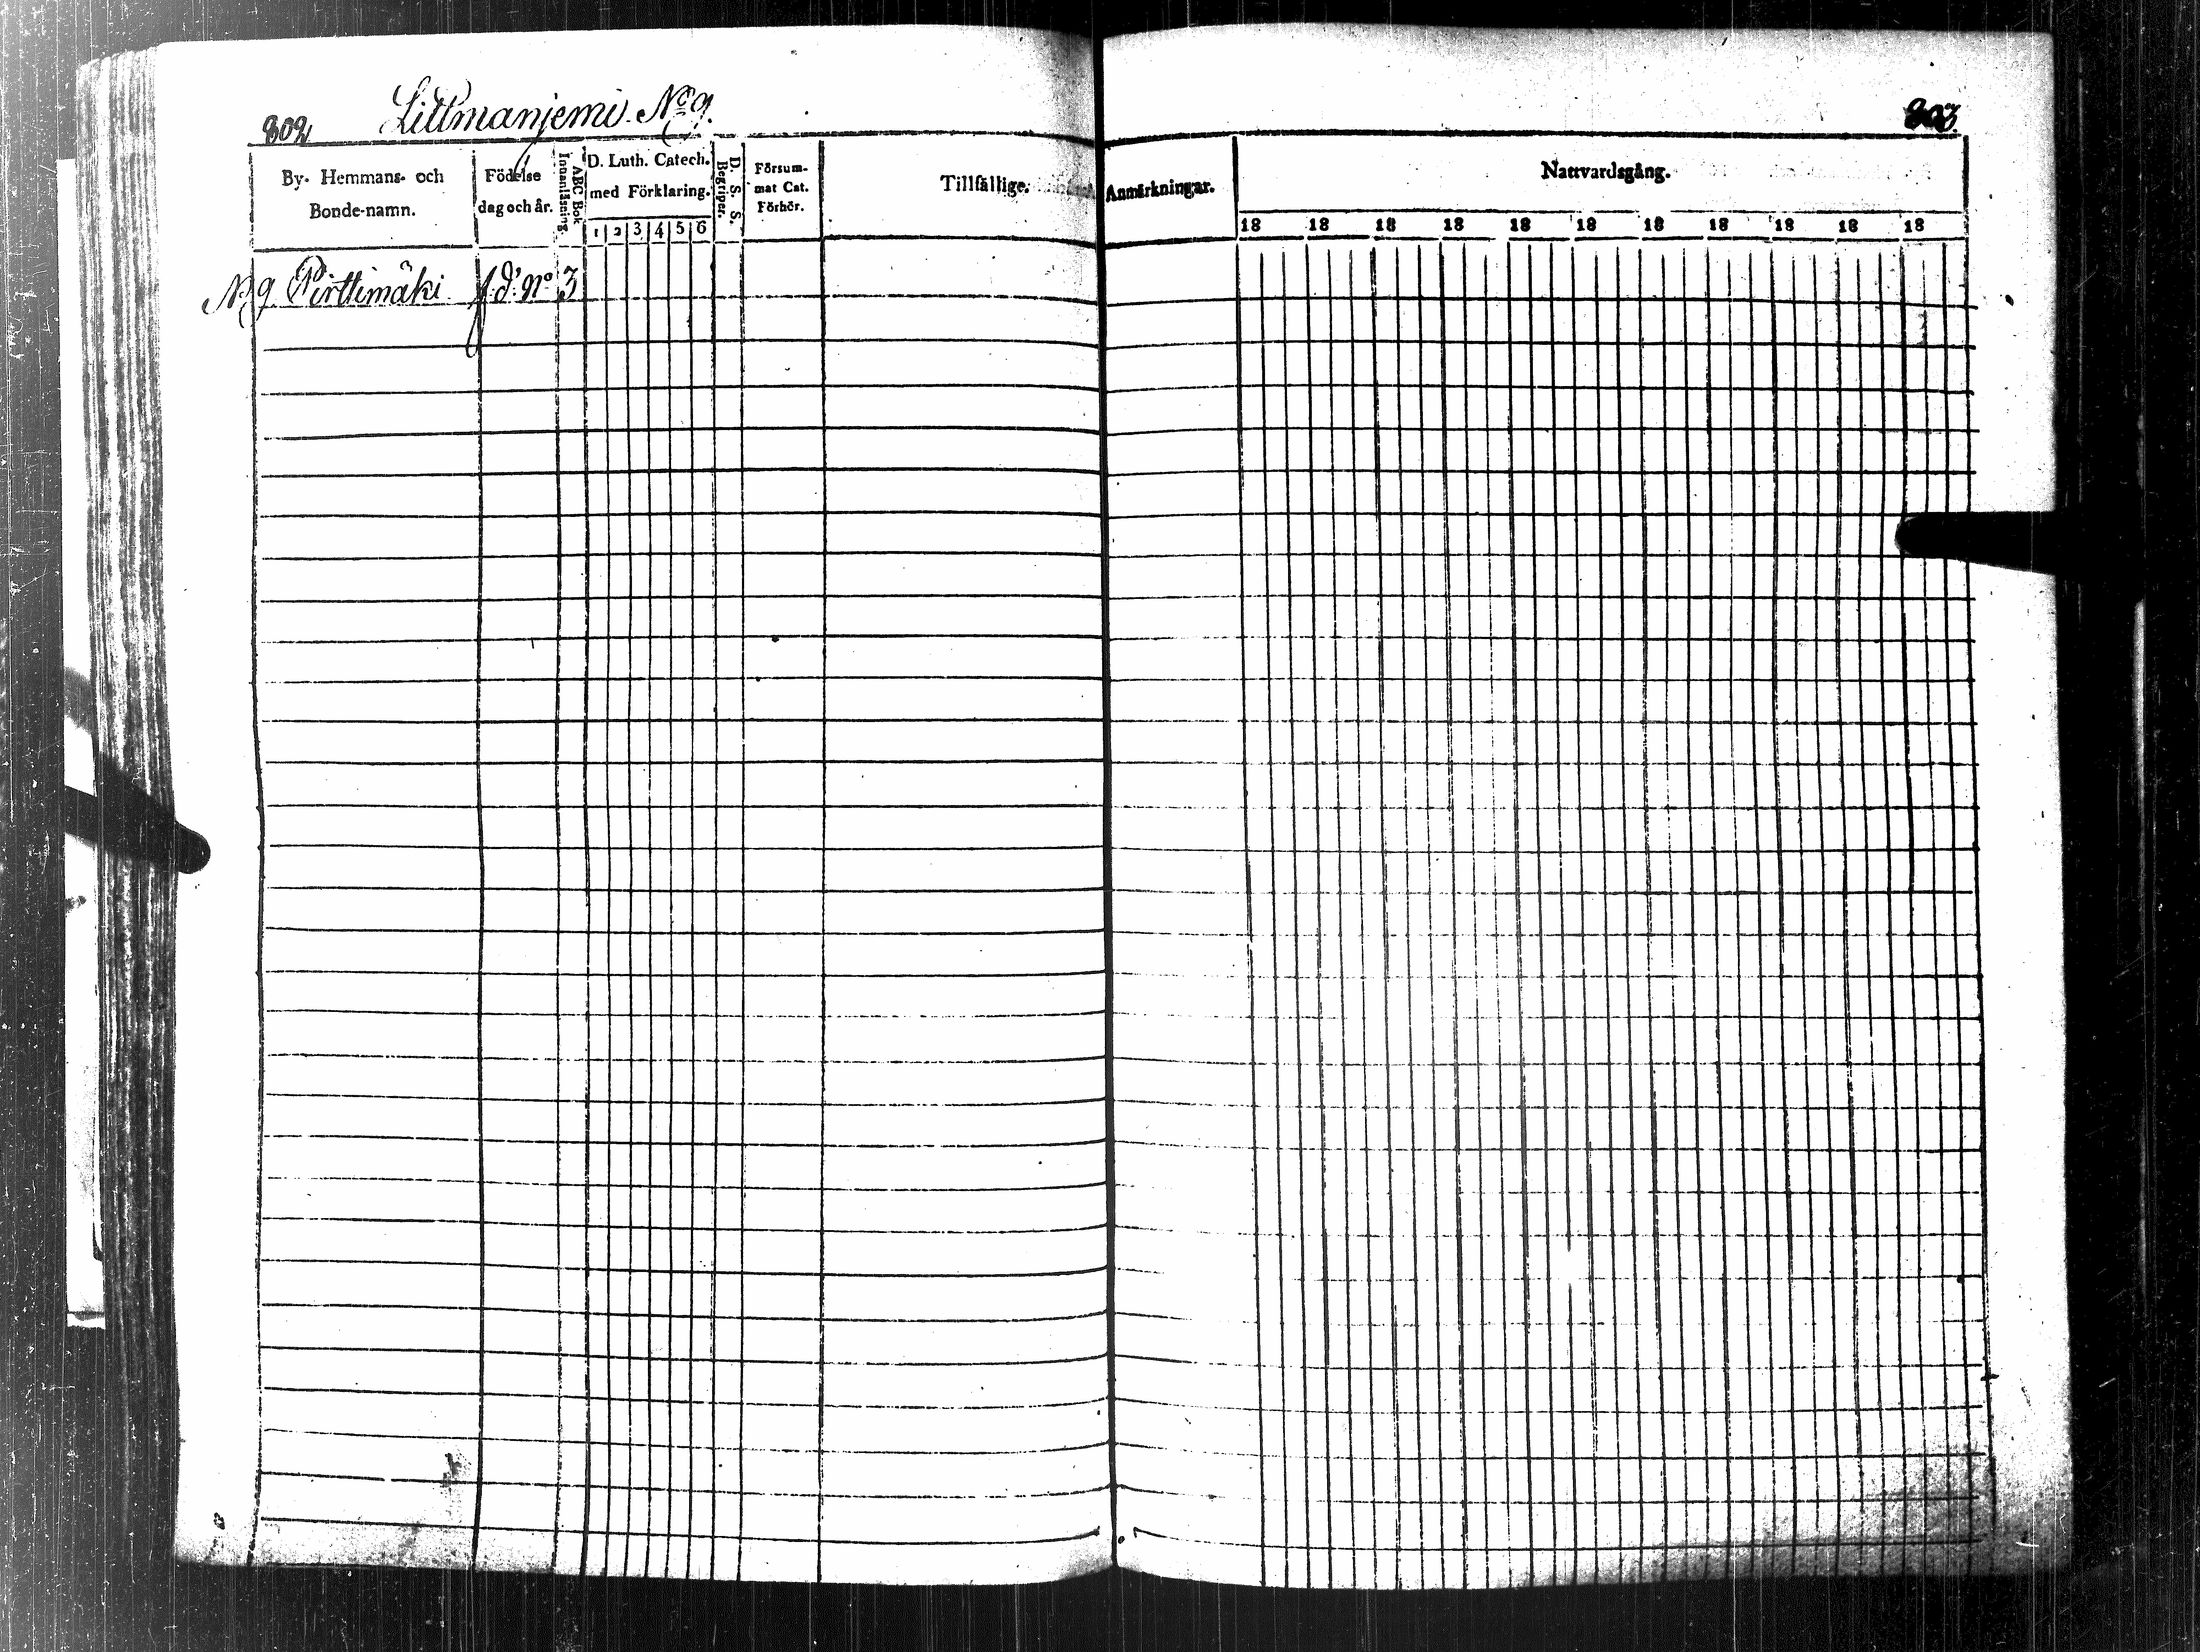 802
Littmanjemi N:o 9.
803
By- Hemmans- och Bonde-namn.
Födelse dag och år.
ABC Bok Innanläsning.
D. Luth. Catech. med Förklaring.
1 2 3 4 5 6
D. S. S. Begriper.
Försum- mat Cat. Förhör.
Tillfällige Anmärkningar.
Nattvardsgång.
18 18 18 18 18 18 18 18 18 18 18
N:o 9 Pirttimäki f.d. N:o 3